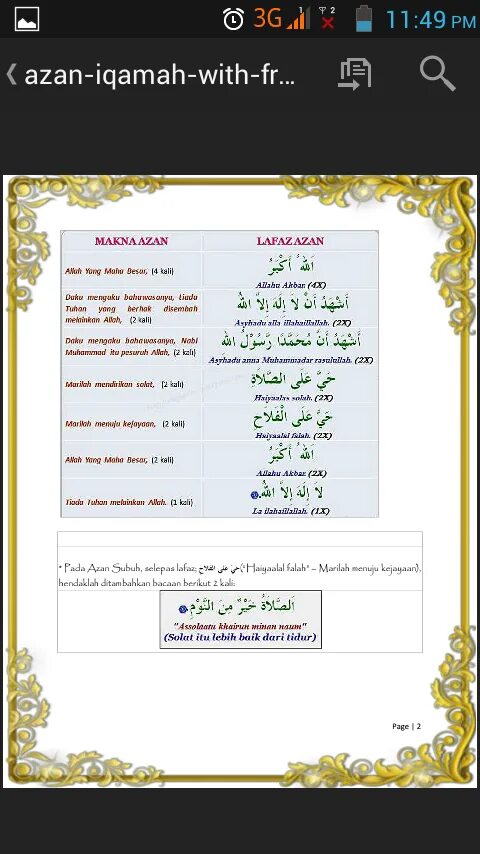 3G 1 2 11:49 PM
azan-iqamah-with-fr...
MAKNA AZAN LAFAZ AZAN
اَللهُ أَكْبَرُ
Allah Yang Maha Besar, (4 kali) Allahu Akbar. (4X)
Daku mengaku bahawasanya, tiada
Tuhan yang berhak disembah
melainkan Allah, (2 kali)
أَشْهَدُ أَنْ لَا إِلَهَ إِلاَّ اللهُ
Asyhadu alla illahaillallah. (2X)
Daku mengaku bahawasanya, Nabi
Muhammad itu pesuruh Allah, (2 kali)
أَشْهَدُ أَنَّ مُحَمَّدًا رَّسُوْلُ اللهِ
Asyhadu anna Muhammadar rasulullah. (2X)
Marilah mendirikan solat, (2 kali)
حَيَّ عَلَى الصَّلاَةِ
Haiyaalas solah. (2X)
Marilah menuju kejayaan, (2 kali)
حَيَّ عَلَى الْفَلاَحِ
Haiyaalal falah. (2X)
Allah Yang Maha Besar, (2 kali)
اَللهُ أَكْبَرُ
Allahu Akbar. (2X)
Tiada Tuhan melainkan Allah. (1 kali)
لاَ إِلَهَ إِلاَّ اللهُ.
La ilahaillallah. (1X)
* Pada Azan Subuh, selepas lafaz; حيّ على الفلاح ("Haiyaalal falah" – Marilah menuju kejayaan),
hendaklah ditambahkan bacaan berikut 2 kali:
اَلصَّلاَةُ خَيْرٌ مِنَ النَّوْمِ
"Assolaatu khairun minan naum"
(Solat itu lebih baik dari tidur)
Page | 2